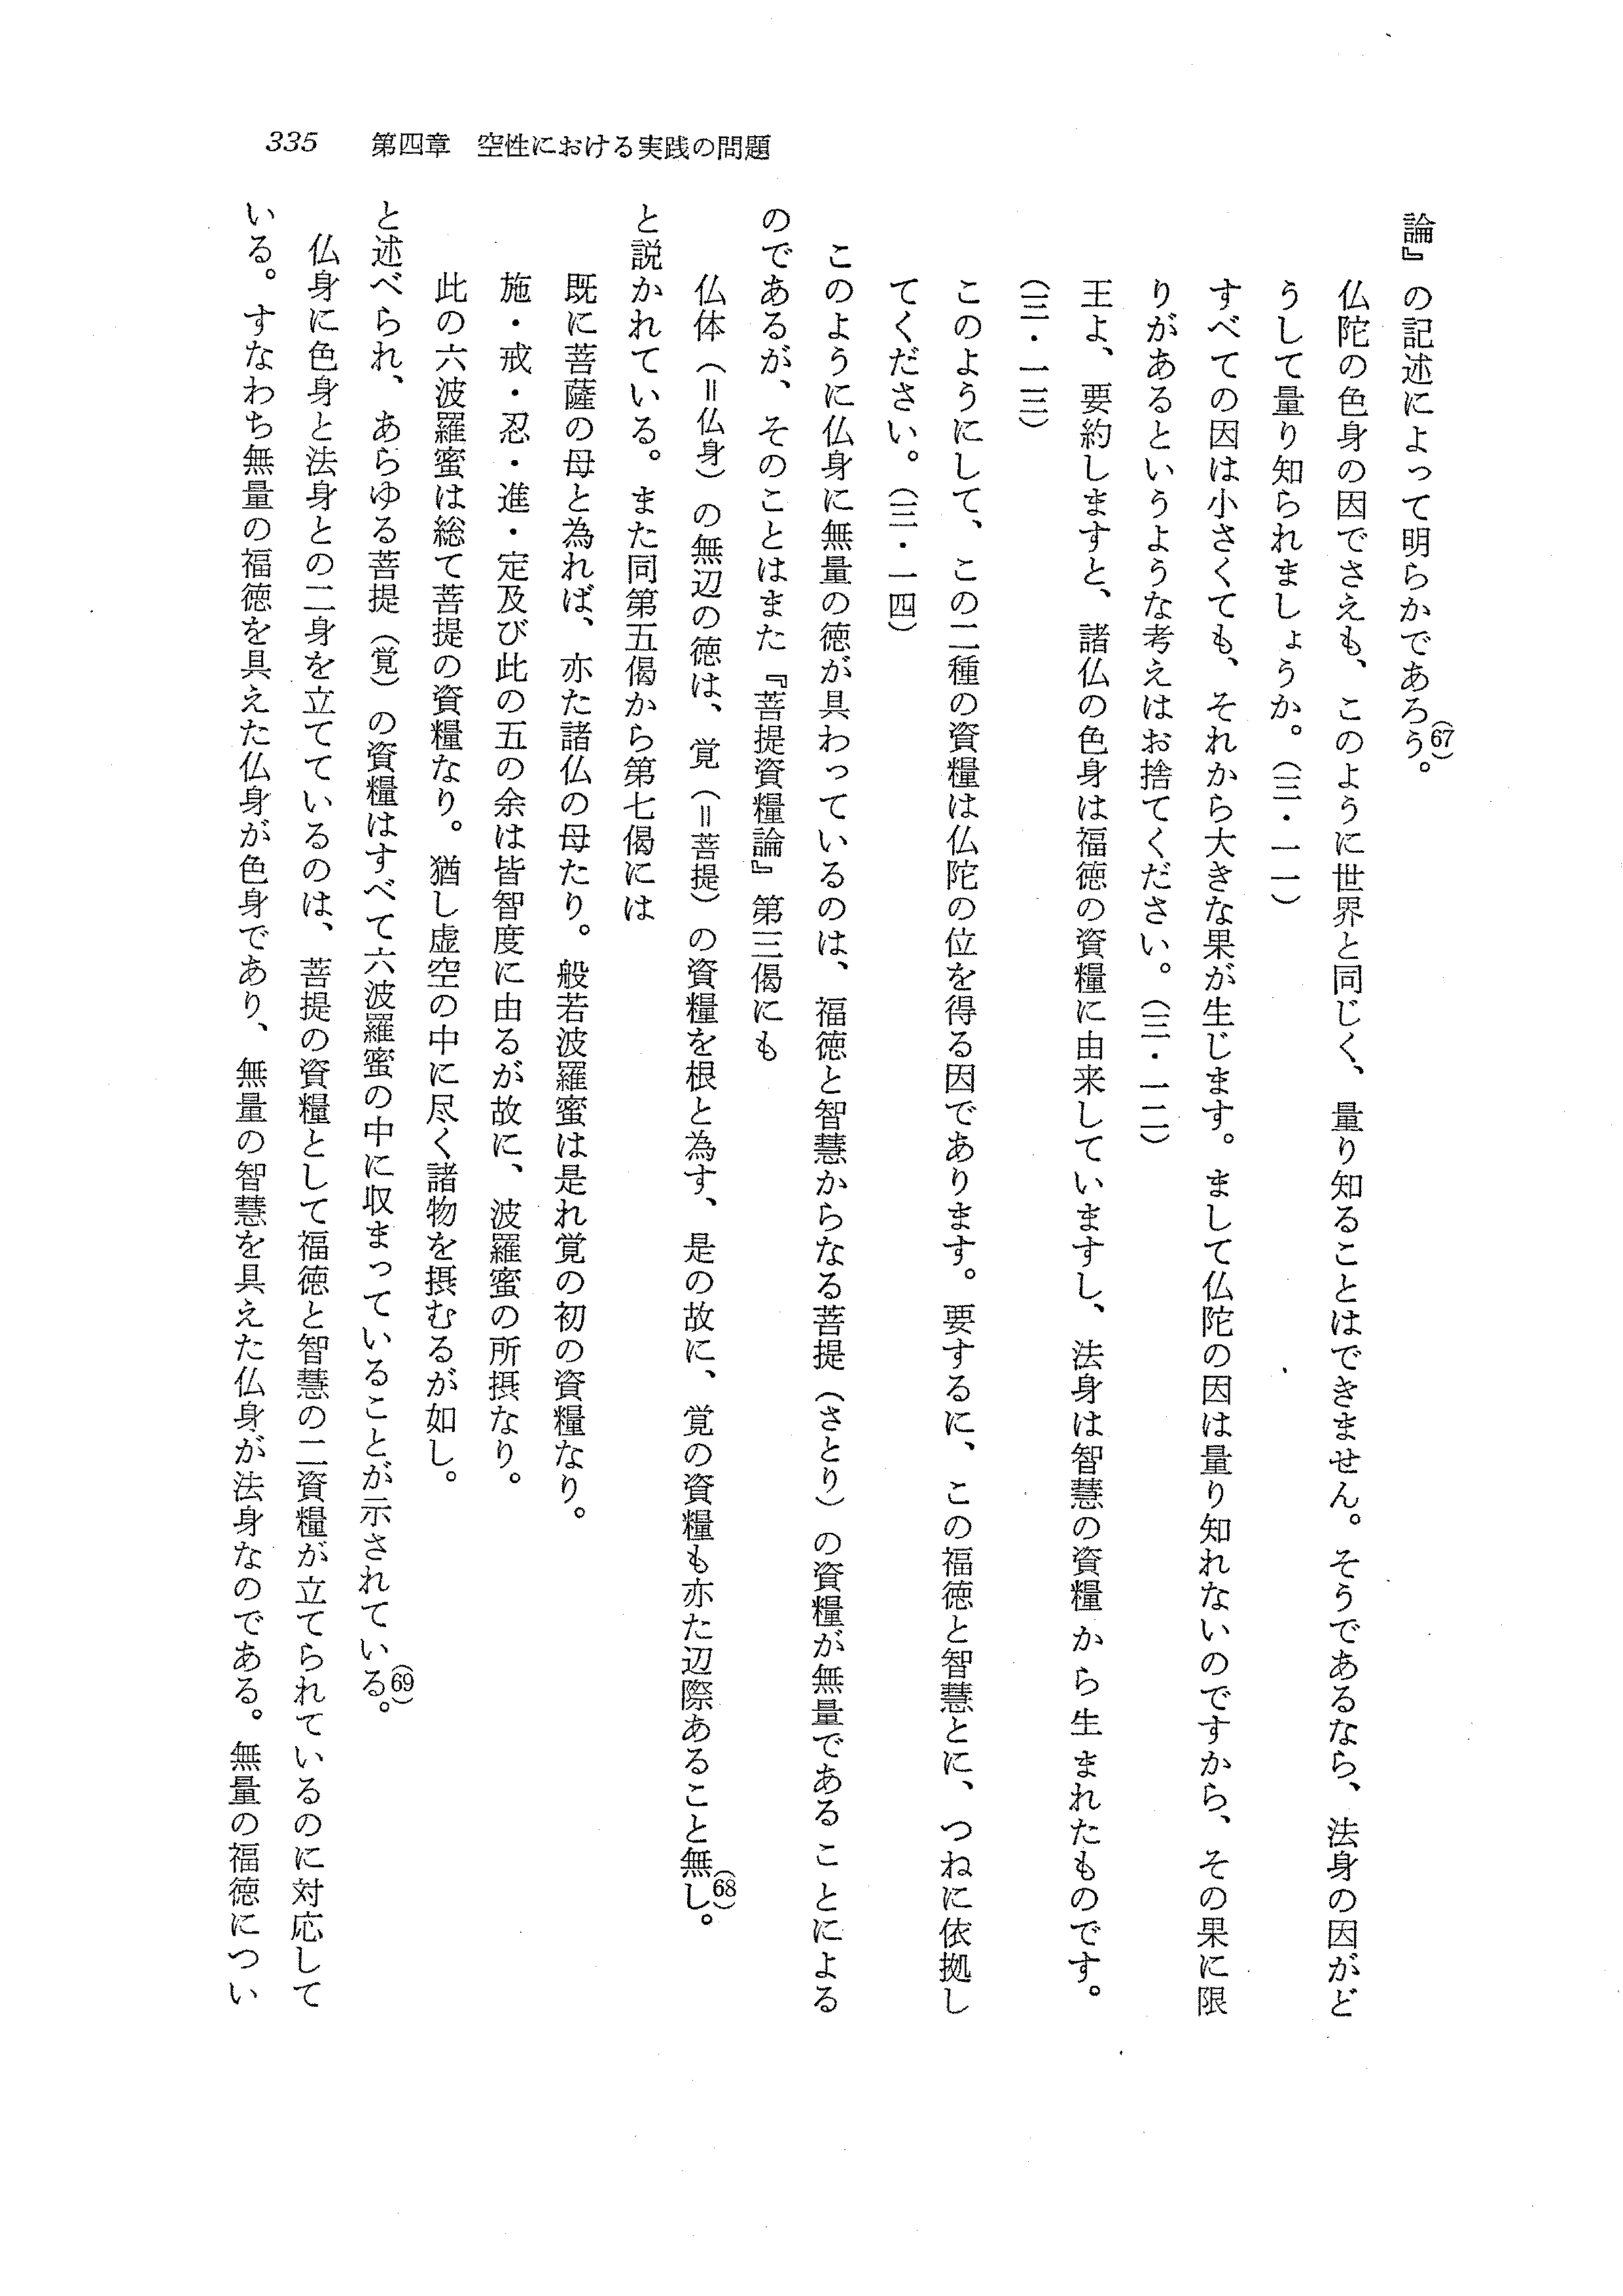 335　第四章　空性における実践の問題
論』の記述によって明らかであろう。(67)
仏陀の色身の因でさえも、このように世界と同じく、量り知ることはできません。そうであるなら、法身の因がど
うして量り知られましょうか。（三・一一）
すべての因は小さくても、それから大きな果が生じます。まして仏陀の因は量り知れないのですから、その果に限
りがあるというような考えはお捨てください。（三・一二）
王よ、要約しますと、諸仏の色身は福徳の資糧に由来していますし、法身は智慧の資糧から生まれたものです。
（三・一三）
このようにして、この二種の資糧は仏陀の位を得る因であります。要するに、この福徳と智慧とに、つねに依拠し
てください。（三・一四）
このように仏身に無量の徳が具わっているのは、福徳と智慧からなる菩提（さとり）の資糧が無量であることによる
のであるが、そのことはまた『菩提資糧論』第三偈にも
仏体（＝仏身）の無辺の徳は、覚（＝菩提）の資糧を根と為す、是の故に、覚の資糧も亦た辺際あること無し。(68)
と説かれている。また同第五偈から第七偈には
既に菩薩の母と為れば、亦た諸仏の母たり。般若波羅蜜は是れ覚の初の資糧なり。
施・戒・忍・進・定及び此の五の余は皆智度に由るが故に、波羅蜜の所摂なり。
此の六波羅蜜は総て菩提の資糧なり。猶し虚空の中に尽く諸物を摂むるが如し。
と述べられ、あらゆる菩提（覚）の資糧はすべて六波羅蜜の中に収まっていることが示されている。(69)
仏身に色身と法身との二身を立てているのは、菩提の資糧として福徳と智慧の二資糧が立てられているのに対応して
いる。すなわち無量の福徳を具えた仏身が色身であり、無量の智慧を具えた仏身が法身なのである。無量の福徳につい